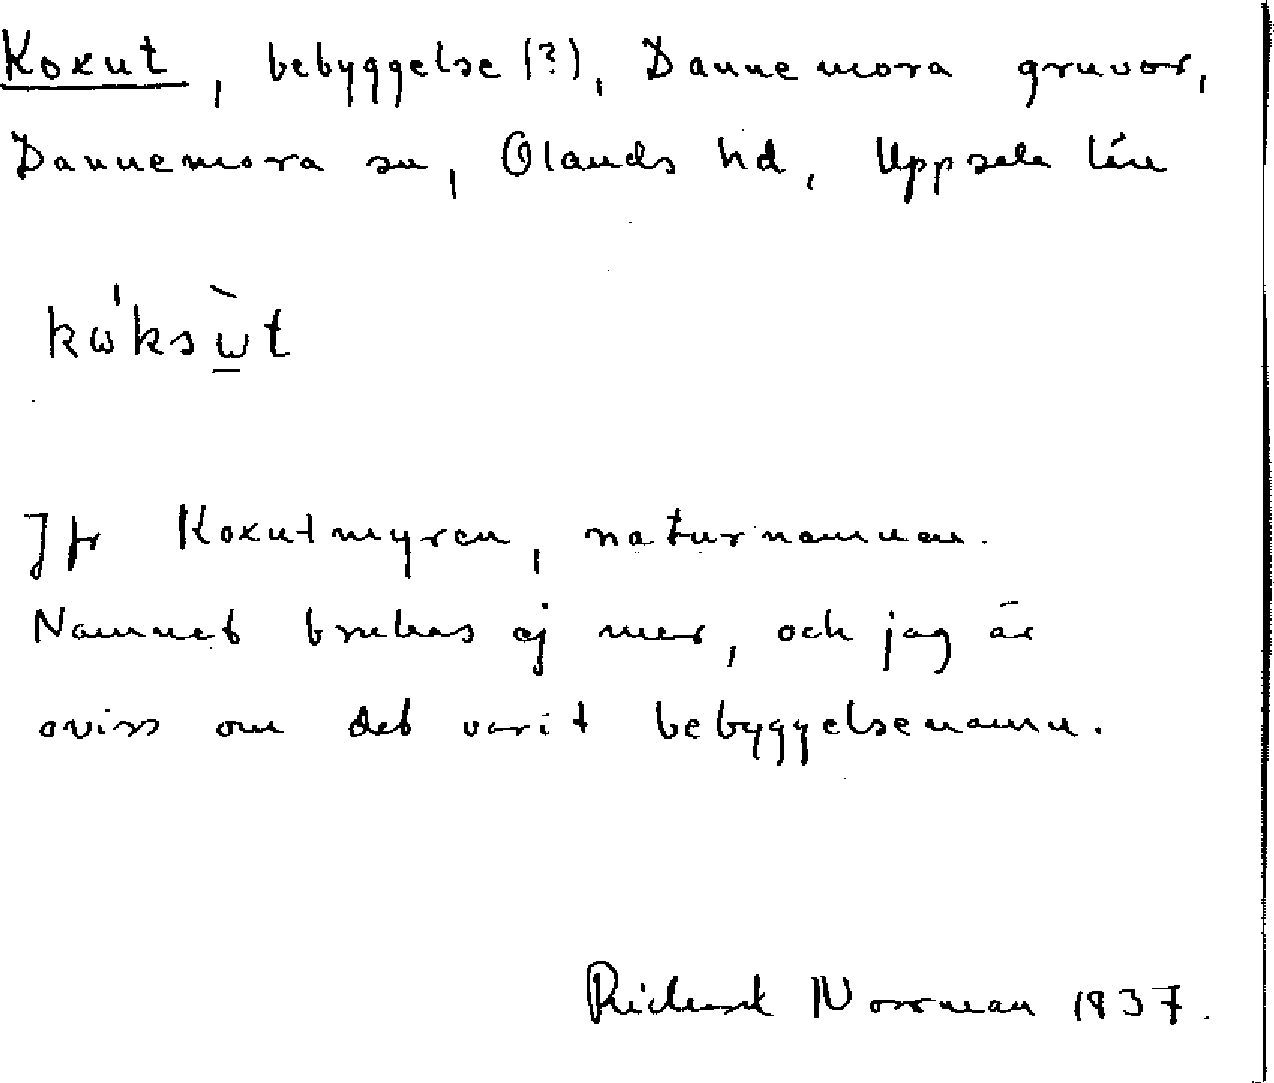 Koxut, bebyggelse (?), Dannemora gruvor,
Dannemora sn, Olands hd, Uppsala län
kω'ksὼt
Jfr Koxutmyren, naturnamnen.
Namnet brukas ej mer, och jag är
oviss om det varit bebyggelsenamn.
Richard Norrman 1937.